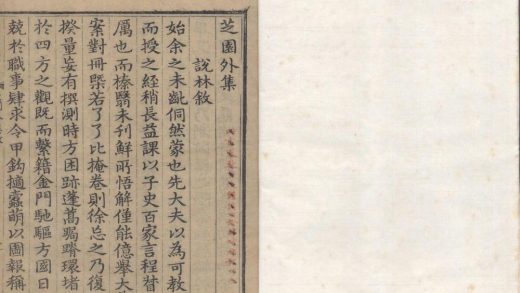 芝園外集
說林敘
始余之未齔侗然蒙也先大夫以為可教
而授之經稍長益課以子史百家言程督
厲也而榛翳未刋鮮所悟解僅能億舉大
案對冊槩若了了比掩卷則徐忘之乃復
揆量妄有撰測時方困跡蓬蒿跼蹐環堵
於四方之觀既而繫籍金門馳驅方國日
兢於職事肆求令甲鈎擿蠧萌以圖報稱